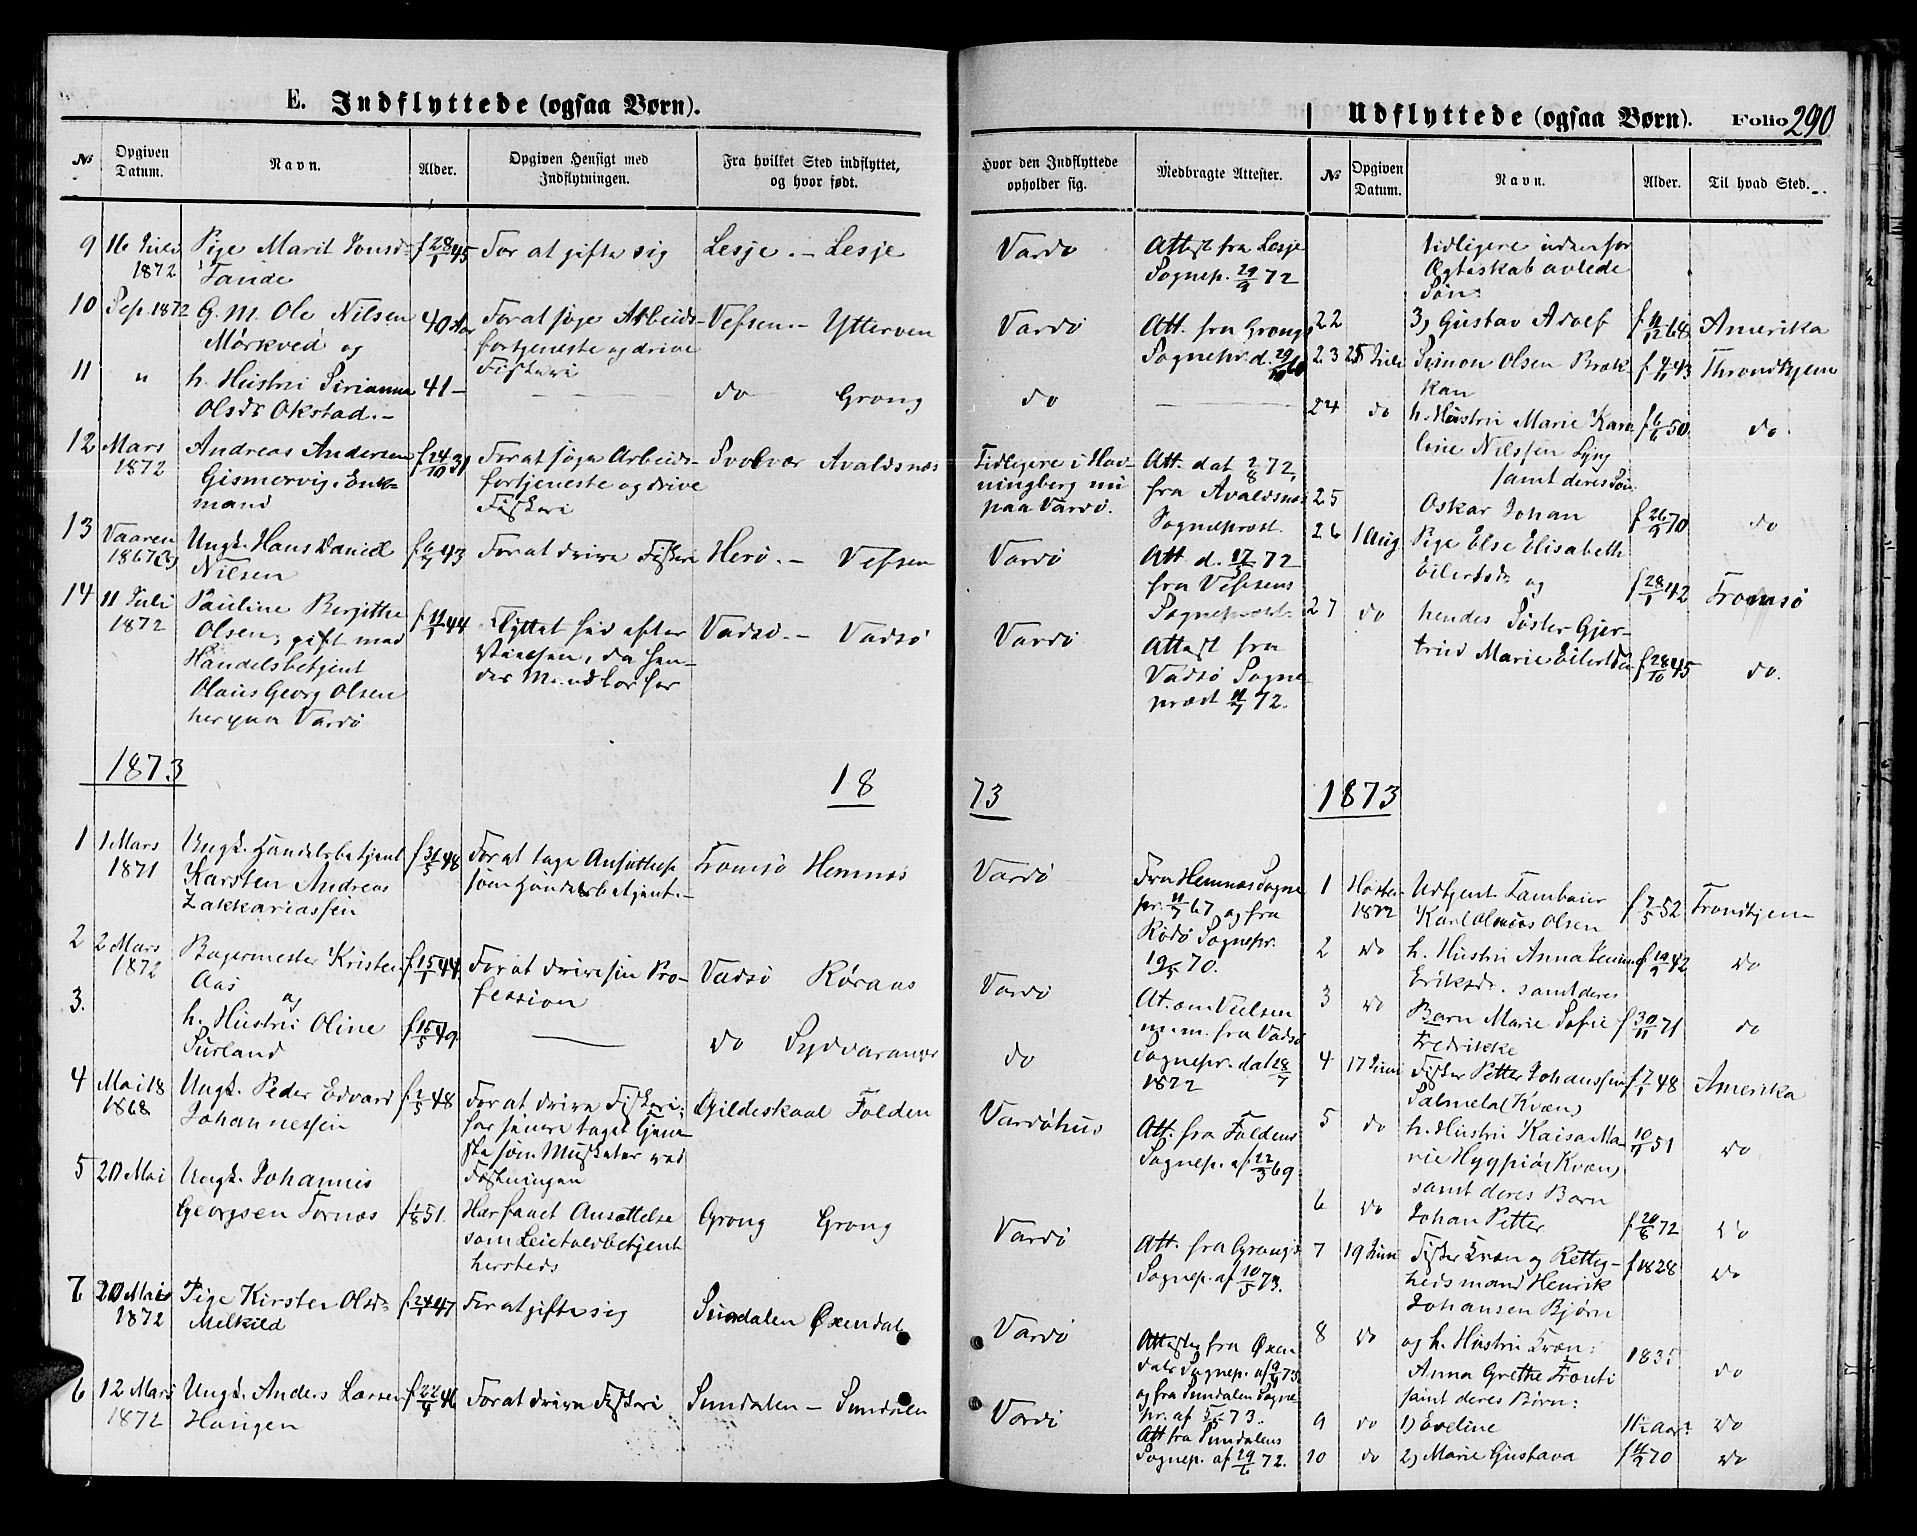 E. Indflyttede (ogsaa Børn).
Udflyttede (ogsaa Børn). Folio 290
№ Opgiven Datum. Navn. Alder. Opgiven Hensigt med Indflytningen. Fra hvilket Sted indflyttet, og hvor født. Hvor den Indflyttede opholder sig. Medbragte Attester.
№ Opgiven Datum. Navn. Alder. Til hvad Sted.
9 16 Juli 1872 Pige Marit Jonsd. Tande f 28/1 45 For at gifte sig Lesje. - Lesje Vardø Attest fra Lesje Sognep. 29/9 72
10 Sep. 1872 G. M. Ole Nilsen Mørkved og 40 Aar For at søge Arbeids- fortjeneste og drive Fiskeri Vefsen. - Ytterven Vardø Att. fra Grongs Sognepr. d.
11 " h. Hustru Sirianna Olsdr Okstad. - 41 - do Grong do
12 Mars 1872 Andreas Andersen Gismervig, Enke- mand f 24/10 31 For at søge Arbeids- fortjeneste og drive Fiskeri Svolvær Avaldsnæs Tidligere i Hav- ningberg nu paa Vardø. Att. dat 2/8 72, fra Avaldsnæs Sogneprest.
13 Vaaren 1867(?) Ungk. Hans Daniel Nilsen f 6/7 43 For at drive Fiskeri Herø. - Vefsen Vardø Att d. 17/5 72 fra Vefsens Sogneprest.
14 11 Juli 1872 Pauline Bergitthe Olsen, gift med Handelsbetjent Olaus Georg Olsen her paa Vardø f 11/1 44 Flyttet hid efter Vielsen, da hen- des Mand bor her Vadsø. - Vadsø Vardø Attest fra Vadsø Sogne- prest 11/7 72.
1873
18
73
1 1 Mars 1871 Ungk. Handelsbetjent Karsten Andreas Zakkariassen f 31/5 48 For at tage Ansættelse som Handelsbetjent. - Tromsø Hemnæs Vardø Fra Hemnæs Sogne pr. 11/7 67 og fra Rødø Sognepr. 19/5 70.
2 2 Mars 1872 Bagermester Kristen Aas og f 15/1 44 For at drive sin Pro- fession Vadsø Røraas Vardø At. om Vielsen m. m. fra Vadsø Sognepr. dat 28/7 1872
3. h. Hustru Oline Surland f 15/5 49 do Sydvaranger do
4 Mai 18 1868 Ungk. Peder Edvard Johannessen f 2/5 48 For at drive Fiskeri; har senere taget Tjene- ste som Musketer ved Fæstningen Gildeskaal Folden Vardøhus Att. fra Foldens Sognep. af 22/3 69.
5 20 Mai Ungk. Johannis Georgsen Fornæs f 1/8 51. Har faaet Ansættelse som Leietoldbetjent hersteds Grong Grong Vardø Att. fra Grongs Sognep. af 10/5 73.
7 20 Mai 1872 Pige Kirsten Olsd. Melkild f 24/1 47 For at gifte sig Sundalen Øxendal Vardø Attester fra Øxen dals Sognep. af 9/4 73 og fra Sundalen Sogne pr. af 5/5 73.
6 12 Mars 1872 Ungk. Anders Larsen Haugen f 22/8 46 For at drive Fiskeri Sundalen - Sundalen Vardø Att fra Sundalens Sognep. af 29/6 72.
tidligere udenfor Ægteskab avlede Søn:
22 3) Gustav Adolf f 11/12 68 Amerika
23 25 Juli Simon Olsen Bræk- kan f 4/11 43 Throndhjem
24 do h. Hustru Marie Karo line Nilssen Lyng samt deres Søn f 6/6 50. do.
25 Oskar Johan f 26/9 70 do
26 1 Aug Pige Else Elisabeth Eilertsd. og f 28/1 42 Tromsø
27 do hendes Søster Gjer- trud Marie Eilertsd. f 28/10 45 do.
1873
1 Høsten 1872 Udtjent Tambour Karl Olaus Olsen f 7/5 52 Trondhjem
2 do h. Hustru Anna Eriksdr. samt deres f 19/9 42 do
3 do Barn Marie Sofie Fredrikke f 30/11 71 do
4 17 Juni Fisker Petter Johanssen Salmela (Kvæn) f 7/1 48 Amerika
5 do h. Hustru Kaisa Ma- rie Hyppiø (Kvæn) samt deres Barn 10/9 51 do
6 do Johan Petter f. 20/6 72 do
7 19 Juni Fisker Kvæn og Rettig- hedsmand Henrik Johansen Bjørn f 1828 do
8 do og h. Hustru Kvæn: Anna Grethe Fronti samt deres Børn: 1835 do
9 do 1) Eveline 11½ Aar? do
10 do 2) Marie Gustava f 11/2 70 do